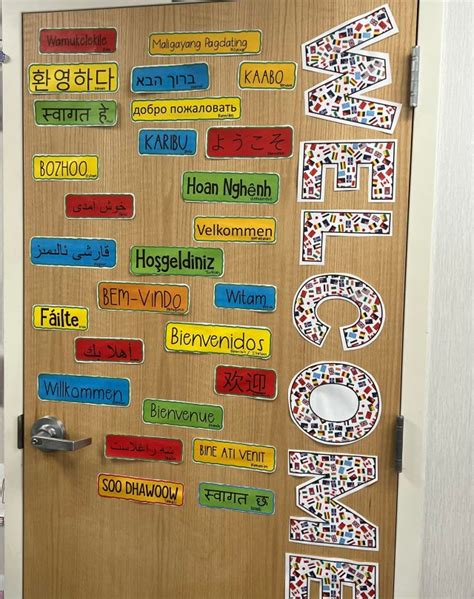 Wamukelekile
Maligayang Pagdating
환영하다
ברוך הבא
KAABO
स्वागत हे
добро пожаловать
KARIBU
ようこそ
BOZHOO
Hoan Nghênh
خوش آمدی
Velkommen
قارشى ئالىمىز
Hoşgeldiniz
BEM-VINDO
Witam
Fáilte
Bienvenidos
أهلا بك
欢迎
Willkommen
Bienvenue
ښه راغلاست
BINE ATI VENIT
SOO DHAWOOW
स्वागत छ
WELCOME